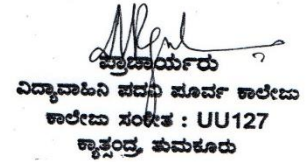 ಪ್ರಾಚಾರ್ಯರು
ವಿದ್ಯಾವಾಹಿನಿ ಪದವಿ ಪೂರ್ವ ಕಾಲೇಜು
ಕಾಲೇಜು ಸಂಕೇತ : UU127
ಕ್ಯಾತ್ಸಂದ್ರ, ತುಮಕೂರು